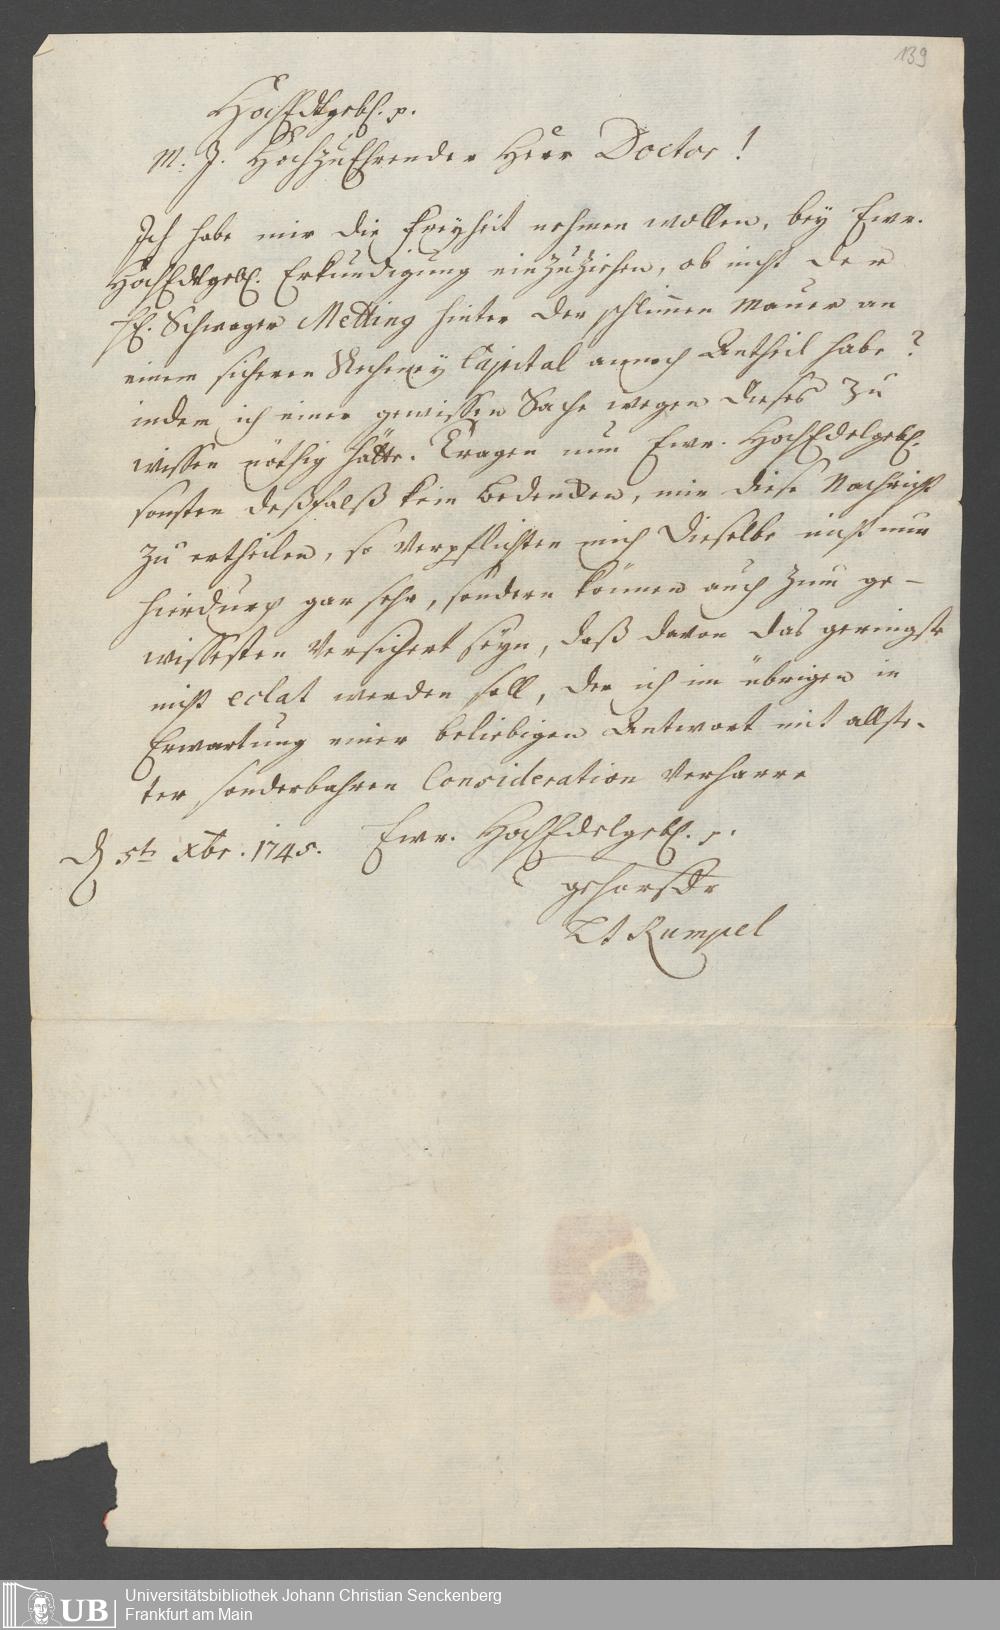 139
HochEdelgebl. p.
M. J. HochzuEhrender Herr Doctor!
Ich habe mir die Freyheit nehmen wollen, bey Ewr.
HochEdelgebl. Erkundigung einzuziehen, ob nicht der
H. Schwager Metting hinter der schlimen Mauer an
einem sicheren Recheney Capital annoch Antheil habe?
indem ich einer gewissen Sache wegen dieses zu
wissen nöthig hätte. Tragen nun Ewr. HochEdelgebl.
sonsten deßfalß kein Bedencken, mir diese Nachricht
zu ertheilen, so verpflichten mich dieselbe nicht nur
hierdurch gar sehr, sondern können auch zum ge-
wissesten versichert seyn, daß davon das geringste
nicht eclat werden soll, der ich im übrigen in
Erwartung einer beliebigen Antwort mit allste-
ter sonderbahren Consideration verharre
Ewr. HochEdelgebl. p.
d 5ten Xbr. 1745.
gehorsster
Rumpel
UB
Universitätsbibliothek Johann Christian Senckenberg
Frankfurt am Main